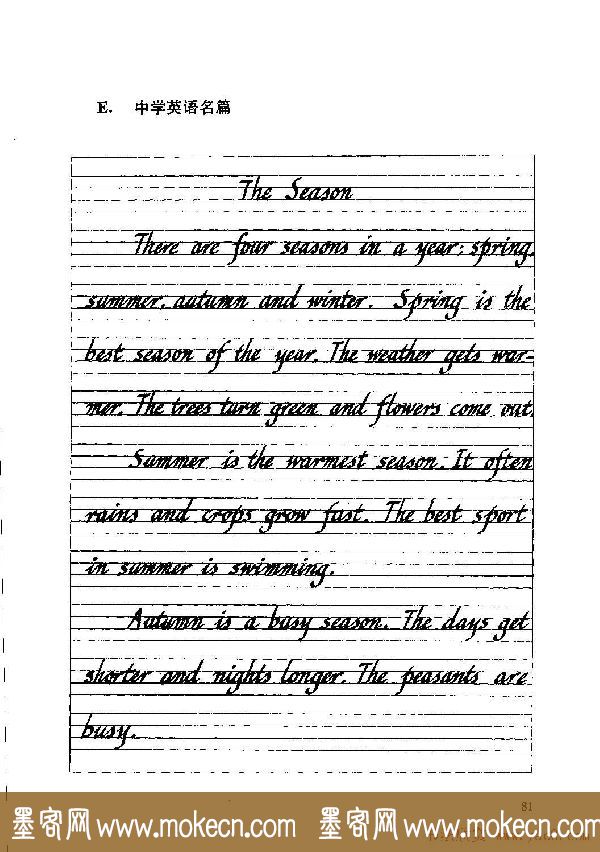 E. 中学英语名篇
The Season
There are four seasons in a year: spring,
summer, autumn and winter. Spring is the
best season of the year. The weather gets war-
mer. The trees turn green and flowers come out.
Summer is the warmest season. It often
rains and crops grow fast. The best sport
in summer is swimming.
Autumn is a busy season. The days get
shorter and nights longer. The peasants are
busy.
81
墨客网 www.mokecn.com 墨客网 www.mokecn.com